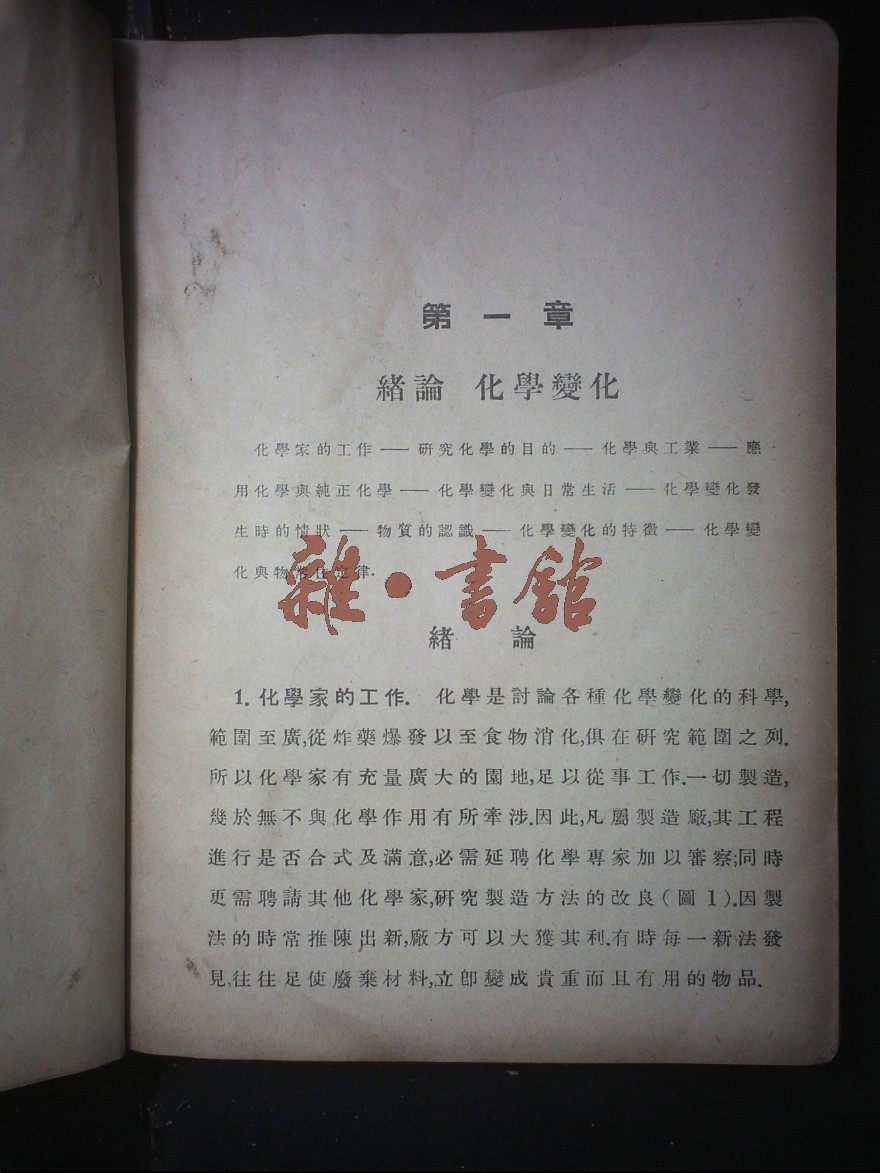 第一章
緒論 化學變化
化學家的工作——研究化學的目的——化學與工業——應
用化學與純正化學——化學變化與日常生活——化學變化發
生時的情狀——物質的認識——化學變化的特徵——化學變
化與物常住定律.
雜·書館
緒論
1. 化學家的工作. 化學是討論各種化學變化的科學,
範圍至廣,從炸藥爆發以至食物消化,俱在研究範圍之列.
所以化學家有充量廣大的園地,足以從事工作.一切製造,
幾於無不與化學作用有所牽涉.因此,凡屬製造廠,其工程
進行是否合式及滿意,必需延聘化學專家加以審察;同時
更需聘請其他化學家,研究製造方法的改良(圖1).因製
法的時常推陳出新,廠方可以大獲其利.有時每一新法發
見,往往足使廢棄材料,立卽變成貴重而且有用的物品.